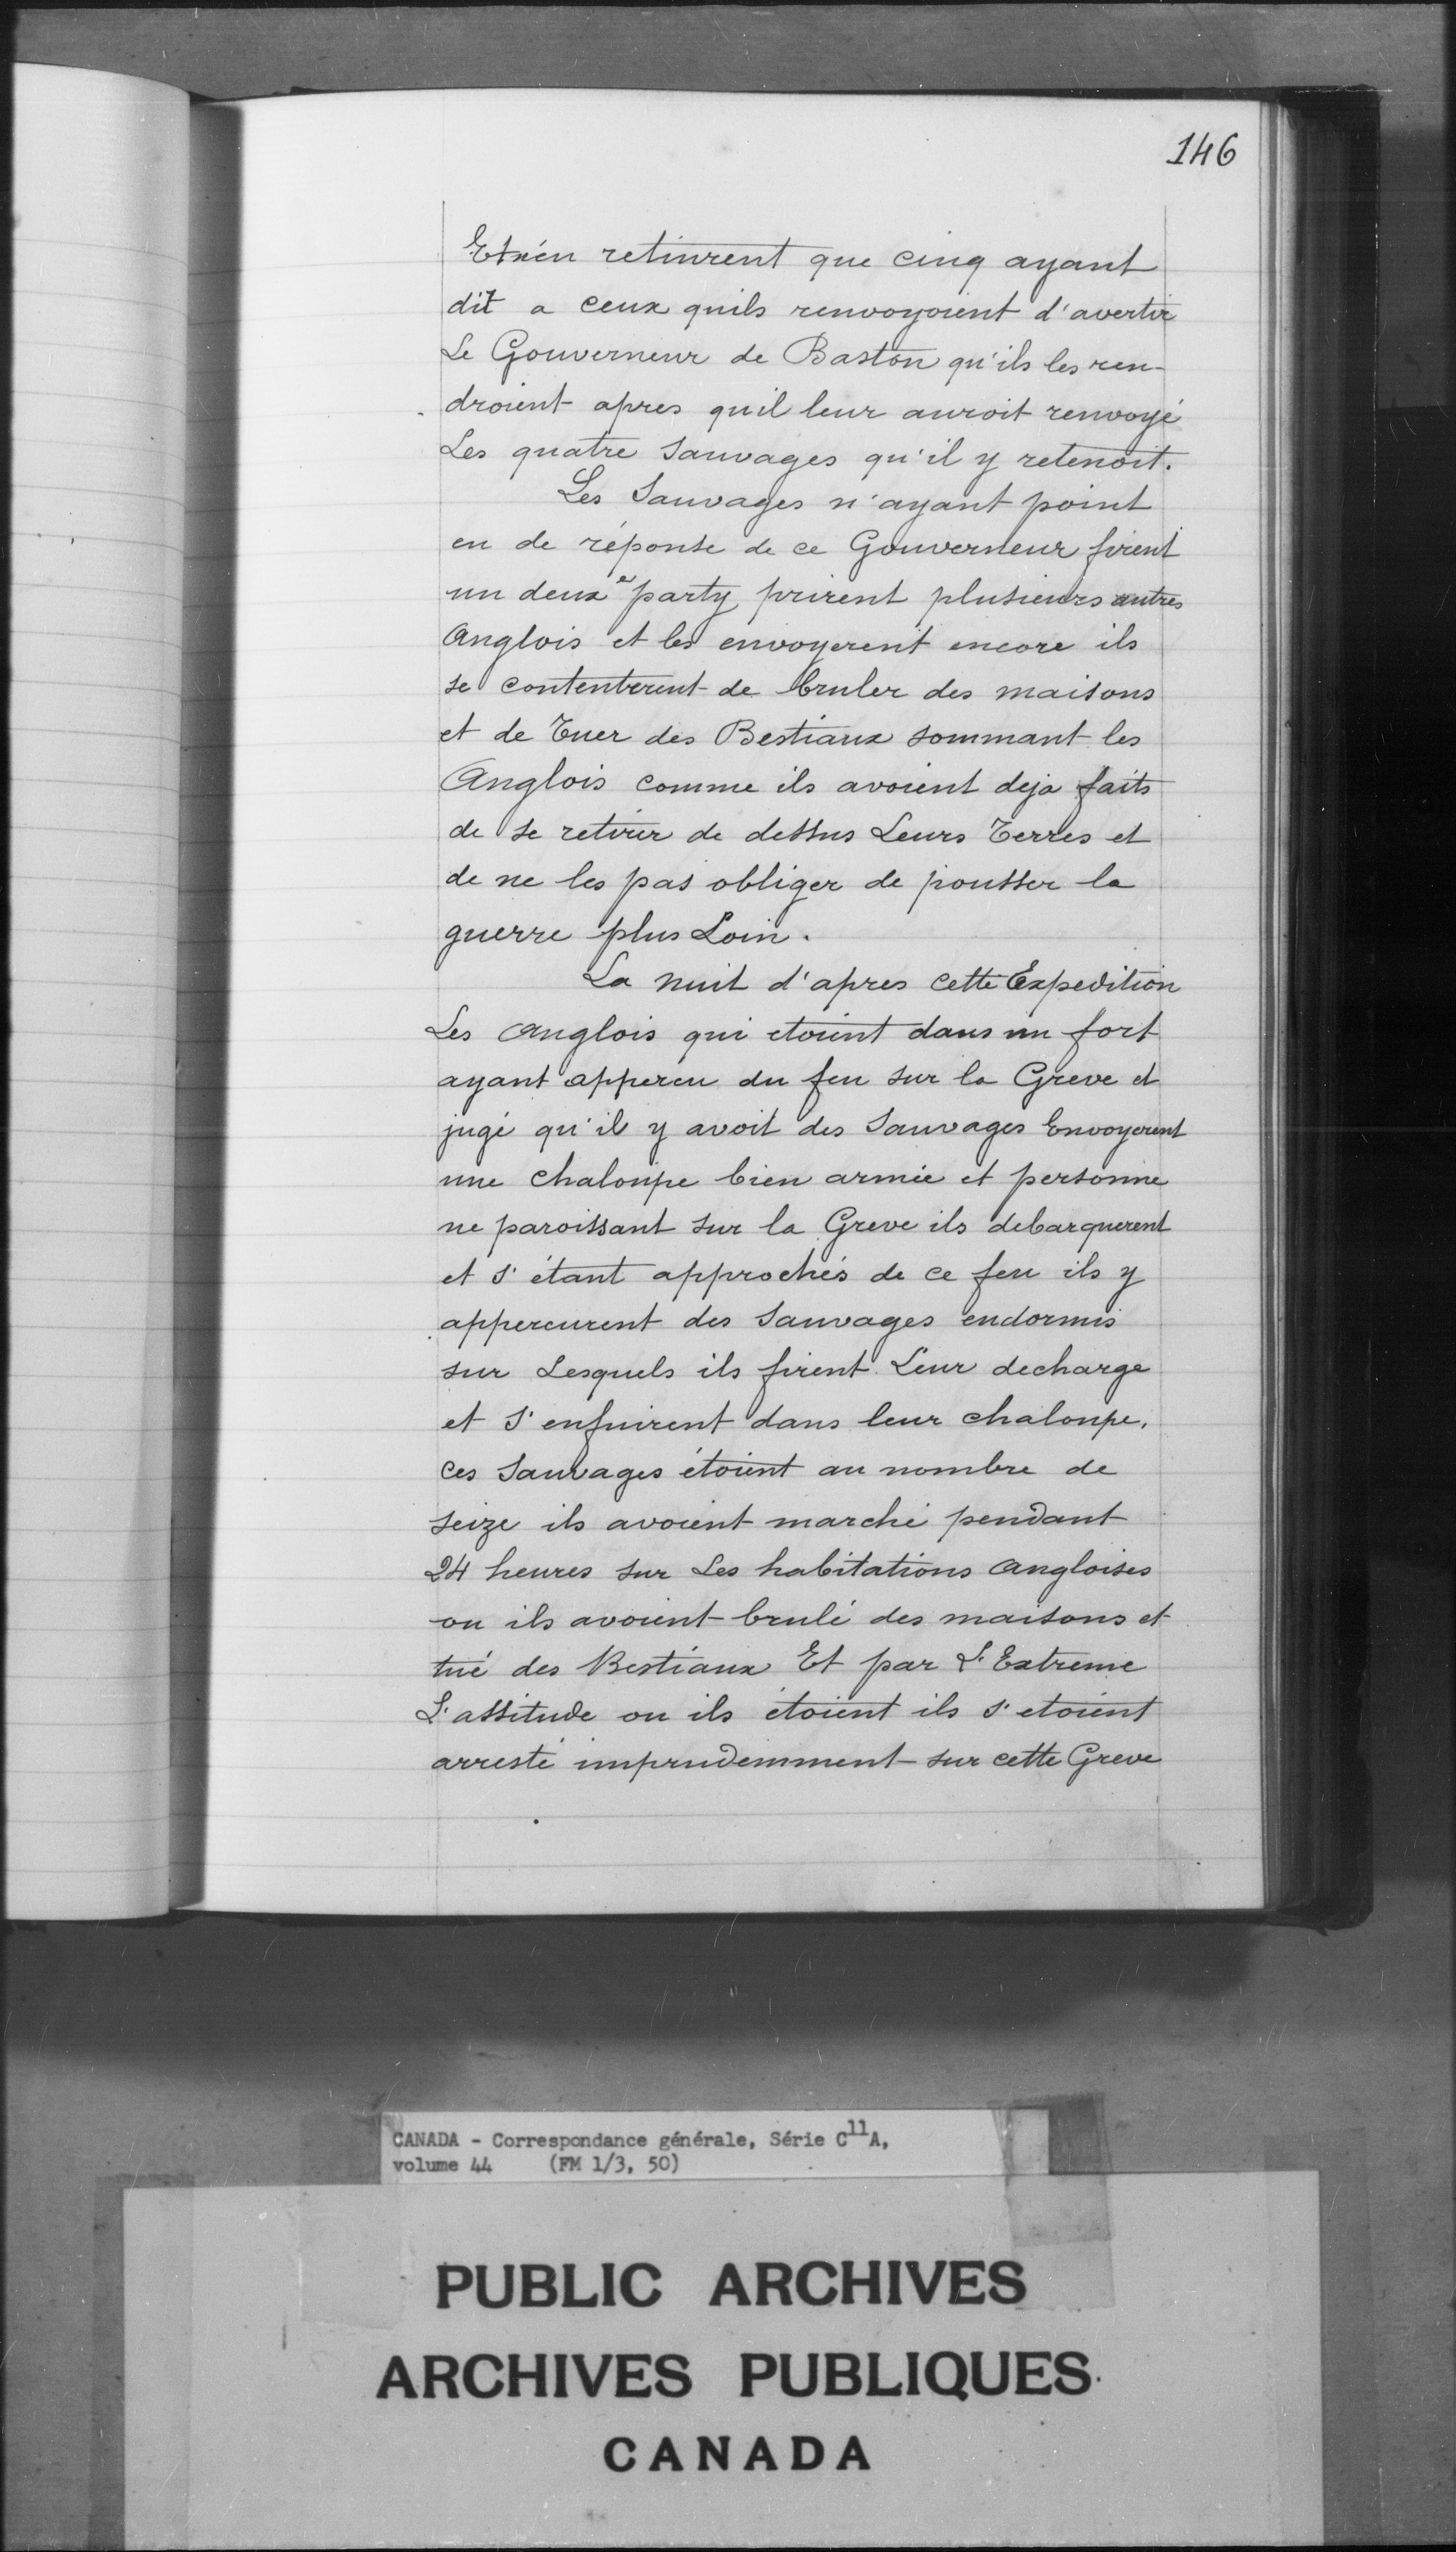 146
Et n'en retinrent que cinq ayant
dit a ceux quils renvoyoient d'avertir
Le Gouverneur de Baston qu'ils les ren-
droient apres quil leur auroit renvoyé
Les quatre Sauvages qu'il y retenoit.
Les Sauvages n'ayant point
eu de réponse de ce Gouverneur firent
un deuxe party prirent plusieurs autres
Anglois et les envoyerent encore ils
se contenterent de bruler des maisons
et de Tuer des Bestiaux sommant les
Anglois comme ils avoient deja faits
de se retirer de dessus Leurs Terres et
de ne les pas obliger de pousser la
guerre plus Loin.
La nuit d'apres cette Expedition
Les Anglois qui etoient dans un fort
ayant apperçu du feu sur la Greve et
jugé qu'il y avoit des Sauvages Envoyerent
une chaloupe bien armée et personne
ne paroissant sur la Greve ils debarquerent
et s'étant approchés de ce feu ils y
appercurent des Sauvages endormis
sur Lesquels ils firent Leur decharge
et s'enfuirent dans leur chaloupe,
ces Sauvages étoient au nombre de
seize ils avoient marché pendant
24 heures sur Les habitations angloises
ou ils avoient brulé des maisons et
tué des Bestiaux Et par L'Extreme
L'assitude ou ils étoient ils s'etoient
arresté imprudemment sur cette Greve
CANADA - Correspondance générale, Série C11A,
volume 44 (FM 1/3, 50)
PUBLIC ARCHIVES
ARCHIVES PUBLIQUES
CANADA